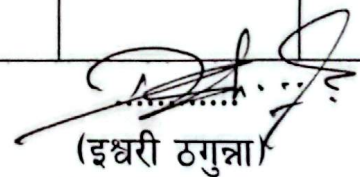 (इश्वरी ठगुन्ना)